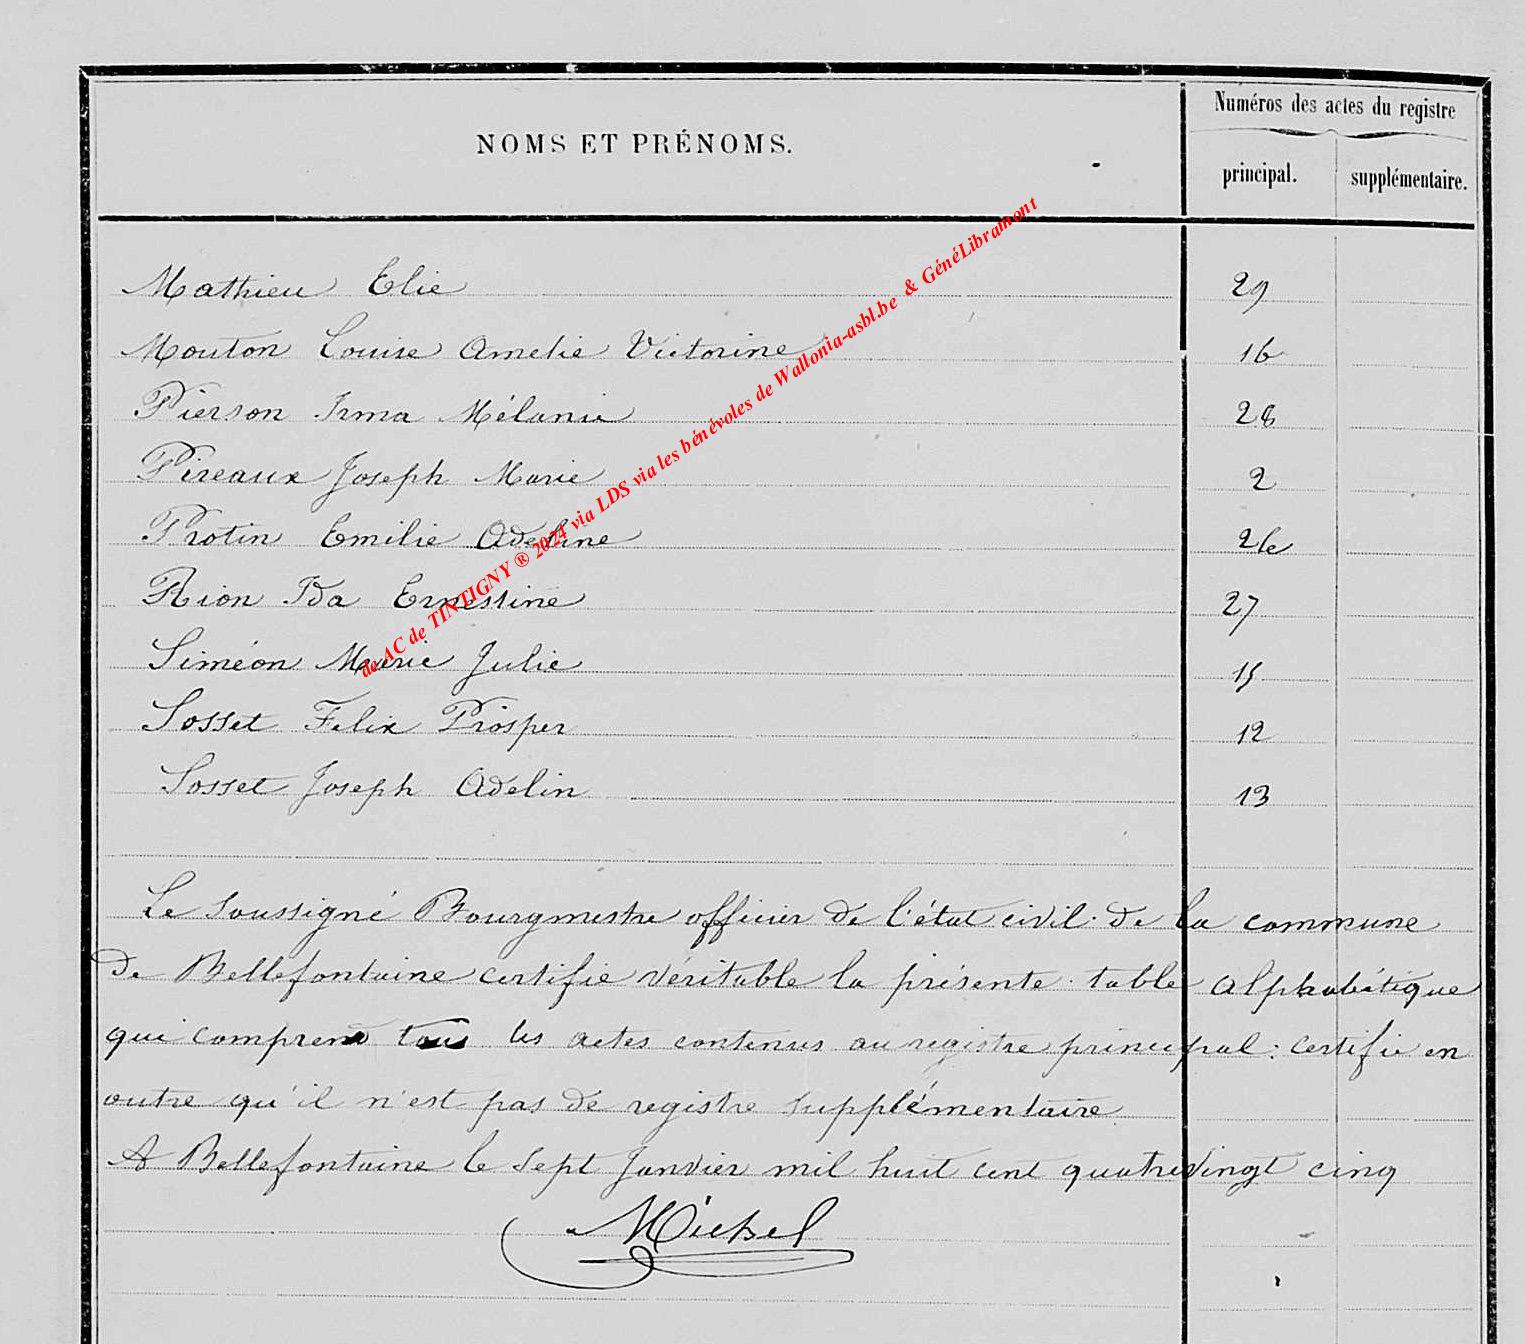 Numéros des actes du registre
NOMS ET PRÉNOMS.
principal. supplémentaire.
Mathieu Elie 29
Mouton Louise Amelie Victorine 16
Pierson Irma Mélanie 28
Pireaux Joseph Marie 2
Protin Emilie Adeline 26
Rion Ida Ernestine 27
Siméon Marie Julie 15
Sosset Felix Prosper 12
Sosset Joseph Adelin 13
Le soussigné Bourgmestre officier de l'état civil de la commune
de Bellefontaine certifie véritable la présente table alphabétique
qui comprend tous les actes contenus au registre principal: certifie en
outre qu'il n'est pas de registre supplémentaire
A Bellefontaine le sept Janvier mil huit cent quatre vingt cinq
Michel
de AC de TINTIGNY ® 2024 via LDS via les bénévoles de Wallonia-asbl.be & GénéLibramont